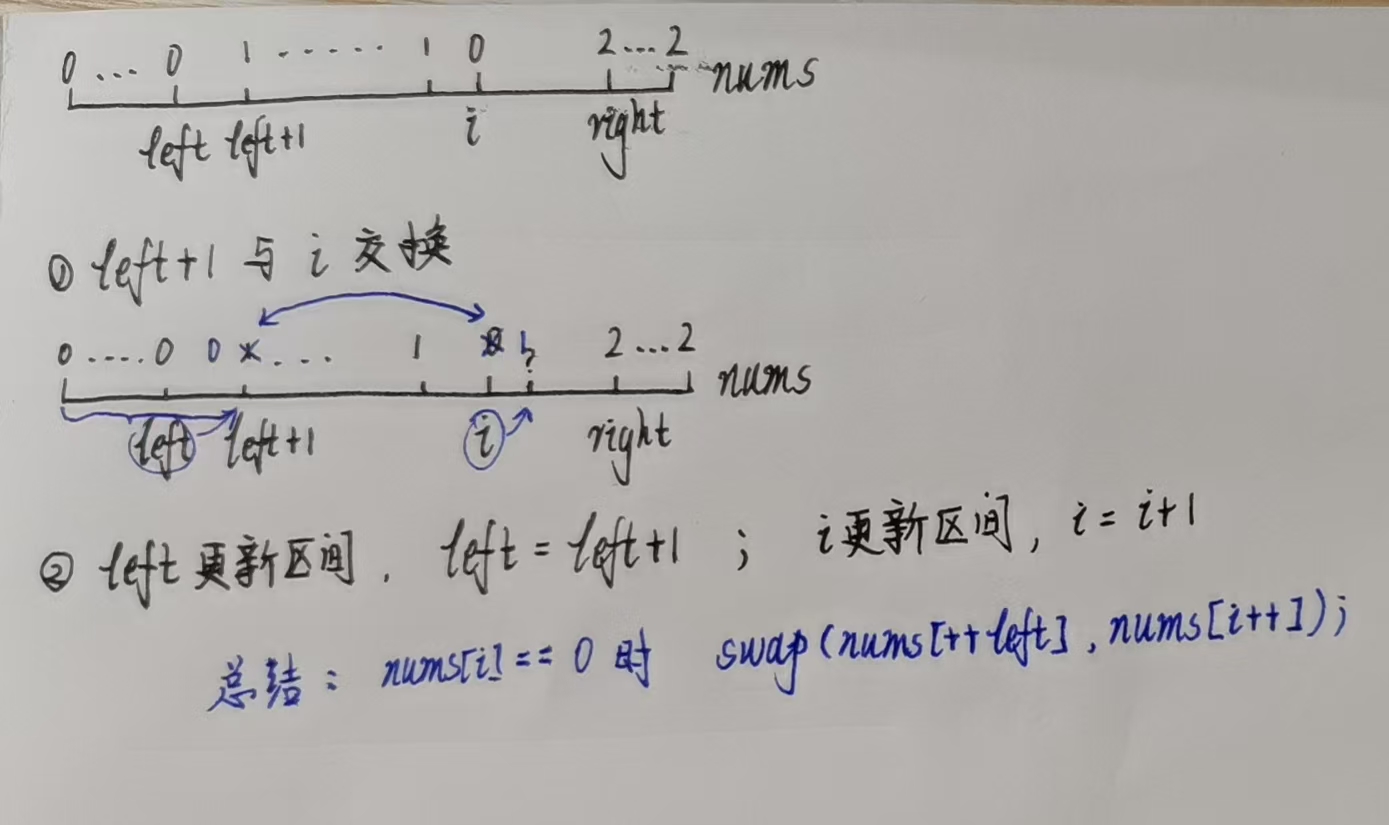 0 ... 0 1 ...... 1 0 2...2 nums
left left+1 i right
① left+1 与 i 交换
0 ....0 0 ... 1 ? 2...2 nums
left left+1 i right
② left 更新区间, left = left+1 ; i更新区间, i = i+1
总结: nums[i] == 0 时 swap(nums[++left], nums[i++]);